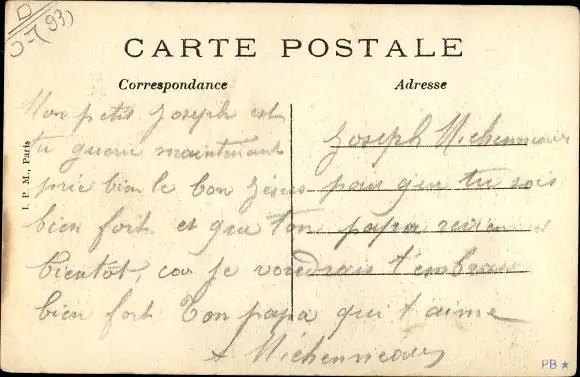 D
J-7(93)
CARTE POSTALE
Correspondance
Adresse
I. P. M., Paris
Mon petit Joseph est
tu gueri maintenant
prie bien le bon Jésus pour que tu sois
bien fort et que ton papa revienne
bientot, car je voudrais t'embrasser
bien fort Ton papa qui t'aime
Joseph
PB